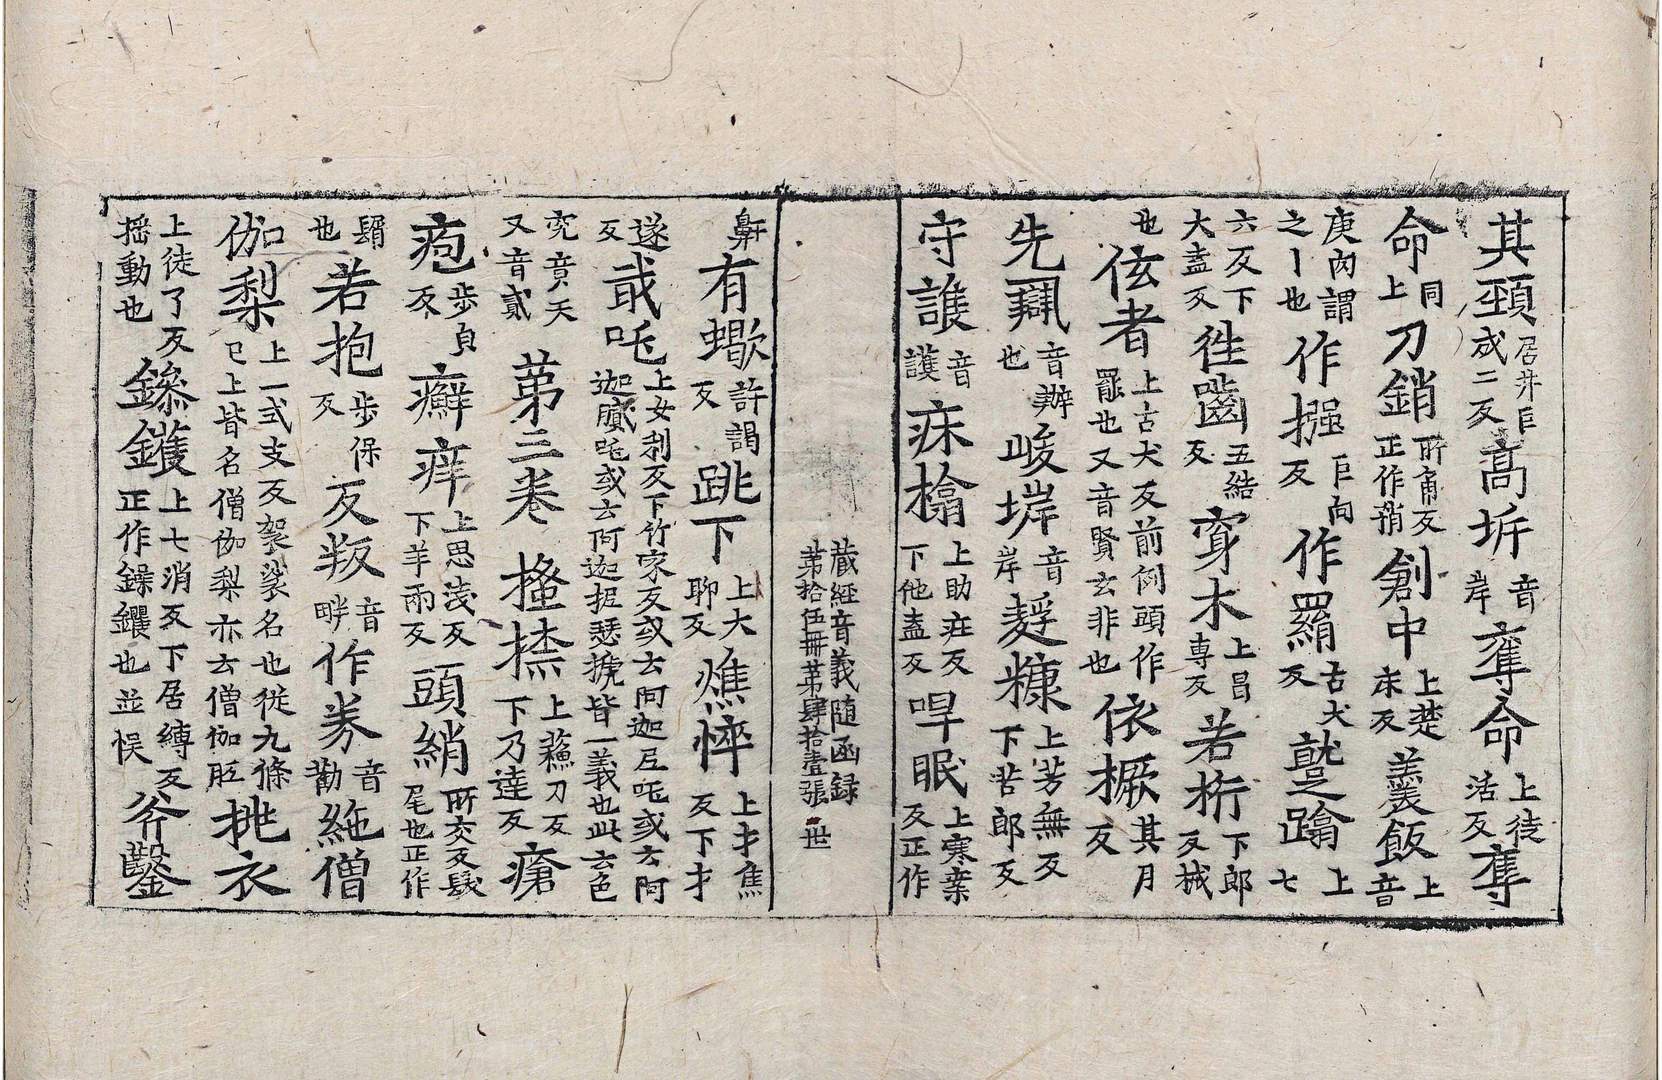 其頸居井巨成二反高垿音岸奪命上徒活反奪
命同上刀銷所角反正作䂎創中上楚床反羹飯上音
庚肉謂之丨也作摾巨向反作羅古犬反躄踰上七
六反下大盍反徃齧五結反穿木上昌専反若桁下郎反械
也伭者上古犬反前例頭作罷也又音賢玄非也依橛其月反
先㸤音辦也峻㟁音岸麬糠上芳無反下苦郎反
守護音護床榻上助庄反下他盍反睅眠上寒案反正作
藏經音義随函録
第拾伍冊第肆拾壹張 世
鼾有蠍許謁反跳下上大聊反憔悴上才焦反下才
遂反咸吒上女利反下竹家反或云阿迦尼吒或云阿迦膩吒或云阿迦抳瑟搋皆一義也此云色
究竟天又音貳第三卷搔㨏上蘓刀反下乃達反瘡
疱步皃反癬痒上思淺反下羊雨反頭綃所交反髮尾也正作
髾也若抱步保反反叛音畔作券音勸絁僧
伽梨上一式支反袈裟名也從九條已上皆名僧伽梨亦云僧伽胝挑衣
上徒了反揺動也鏒鑊上七消反下居縛反正作鐰钁也並悮斧鑿